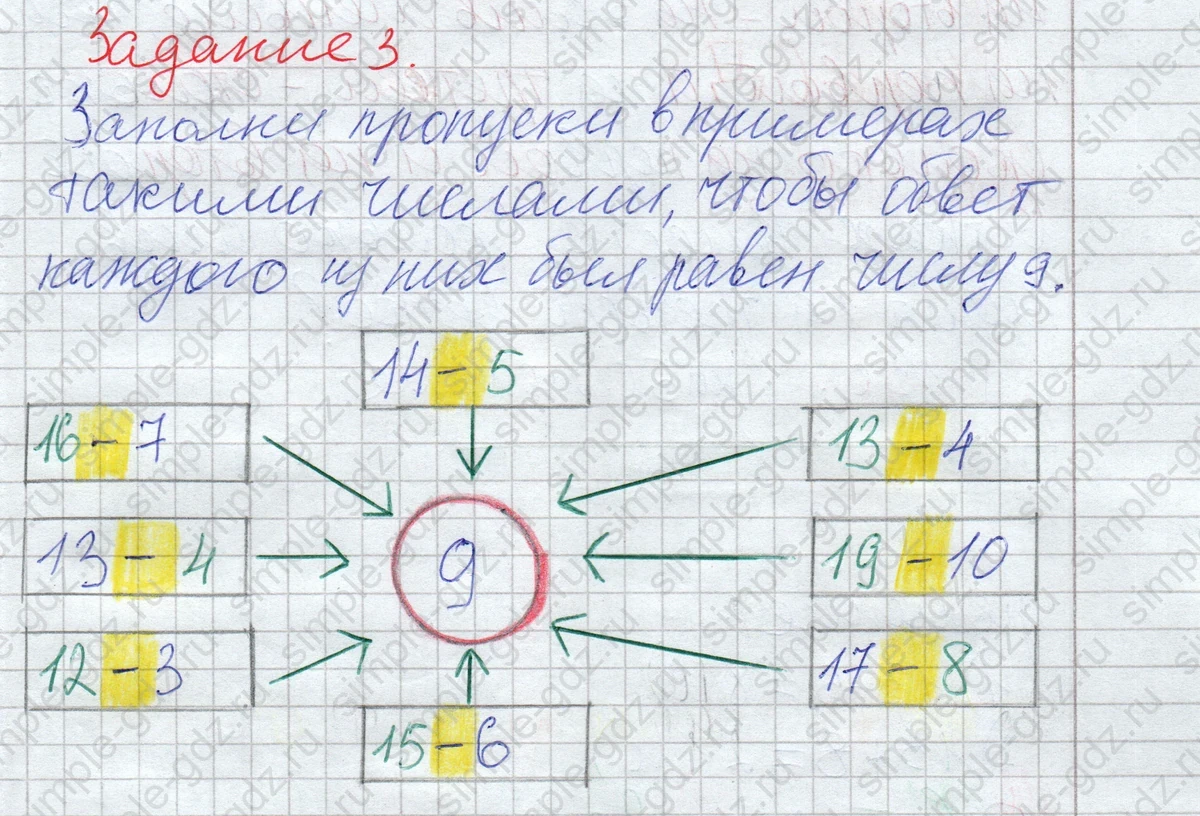 Задание 3.
Заполни пропуски в примерах
такими числами, чтобы обвет
каждого из них был равен числу 9.
14 - 5
16 - 7
13 - 4
13 - 4
9
19 - 10
12 - 3
17 - 8
15 - 6
simple-gdz.ru